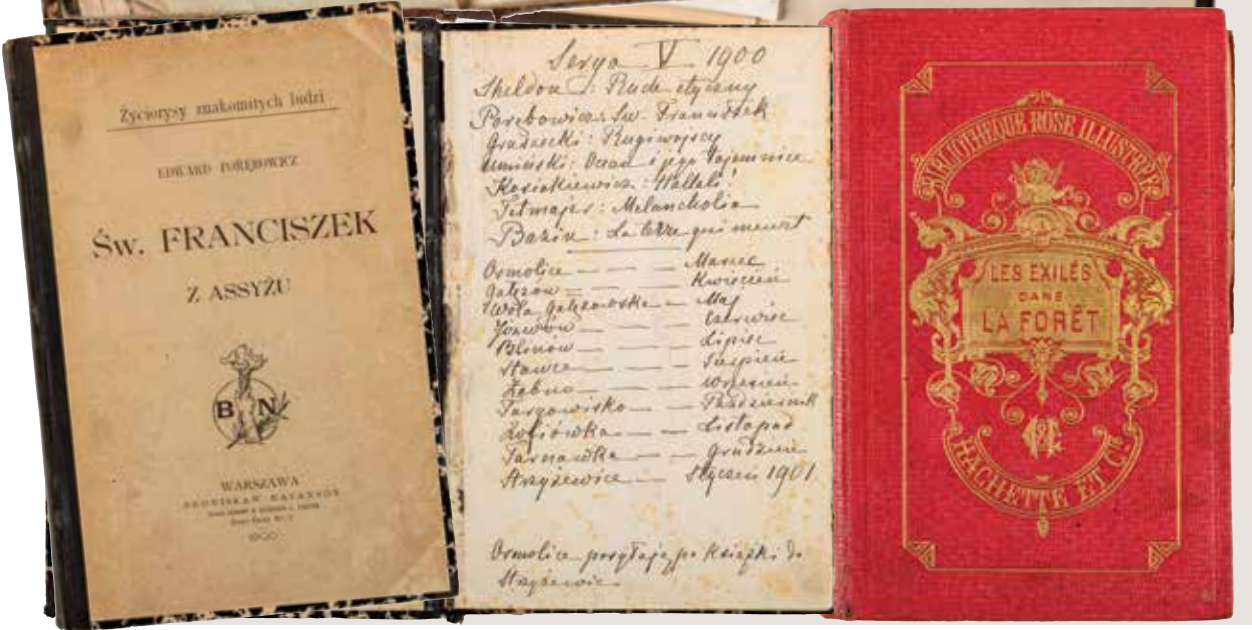 Życiorysy znakomitych ludzi
EDWARD PORĘBOWICZ
Św. FRANCISZEK
Z ASSYŻU
B N
WARSZAWA
BRONISŁAW NATANSON
1900
Serya V 1900
Sheldon : Ruch etyczny
Porębowicz: Św. Franciszek
Grudzecki: Rugiwojscy
Umiński: Ocean i jego tajemnice
Kosiakiewicz: Hallali!
Tetmajer: Melancholia
Bazin: La terre qui meurt
Osmolice — — — Marzec
Gałęzów — — — Kwiecień
Wola Gałęzowska — Maj
Józwów — — — Czerwiec
Blinów — — — Lipiec
Stawce — — — Sierpień
Żabno — — — Wrzesień
Targowisko — — Październik
Zofiówka — — Listopad
Tarnawka — — Grudzień
Strzyżewice — Styczeń 1901
Osmolice posyłają po książki do
Strzyżewic
BIBLIOTHÈQUE ROSE ILLUSTRÉE
LES EXILÉS
DANS
LA FORÊT
HACHETTE ET Cie